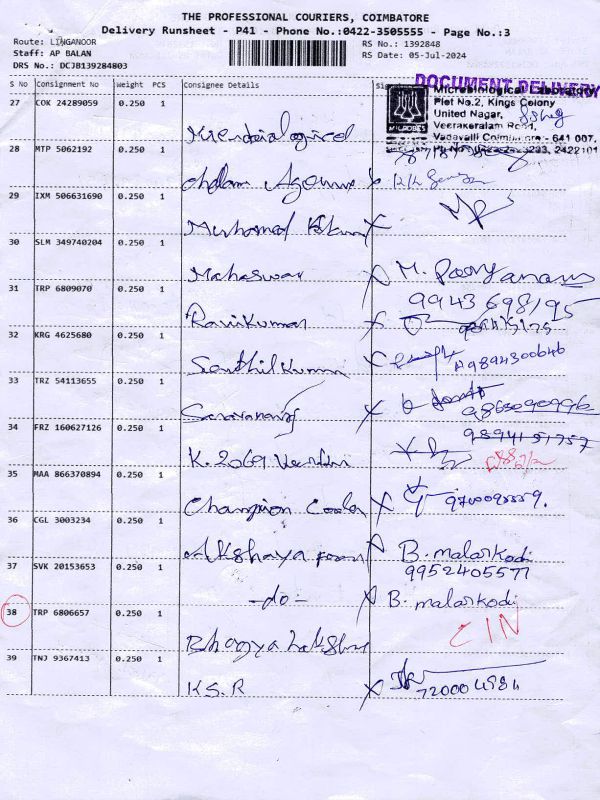 THE PROFESSIONAL COURIERS, COIMBATORE
Delivery Runsheet - P41 - Phone No.:0422-3505555 - Page No.:3
Route: LINGANOOR
Staff: AP BALAN
DRS No.: DCJB139284803
RS No.: 1392848
RS Date: 05-Jul-2024
DOCUMENT DELIVERY
S No Consignment No Weight PCS Consignee Details
Microbiological Laboratory
Plot No.2, Kings Colony
United Nagar,
Veerakeralam Road,
Vadavalli Coimbatore - 641 007.
MICROBES
27 COK 24289059 0.250 1
28 MTP 5062192 0.250 1
29 IXM 506631690 0.250 1
Muhamad
30 SLM 349740204 0.250 1
Maheswar X M. Pooranam
9943698195
31 TRP 6809070 0.250 1
RaviKumar X
32 KRG 4625680 0.250 1
Senthil Kumar X
9894300646
33 TRZ 54113655 0.250 1
Saravanan X
34 FRZ 160627126 0.250 1
9894151757
K. 2069
35 MAA 866370894 0.250 1
Champion Cooler X
36 CGL 3003234 0.250 1
Akshaya X B. malarkodi
9952405577
37 SVK 20153653 0.250 1
-do- X B. malarkodi
38 TRP 6806657 0.250 1
CIN
Bhagya Lakshmi
39 TNJ 9367413 0.250 1
K.S.R X
720004984